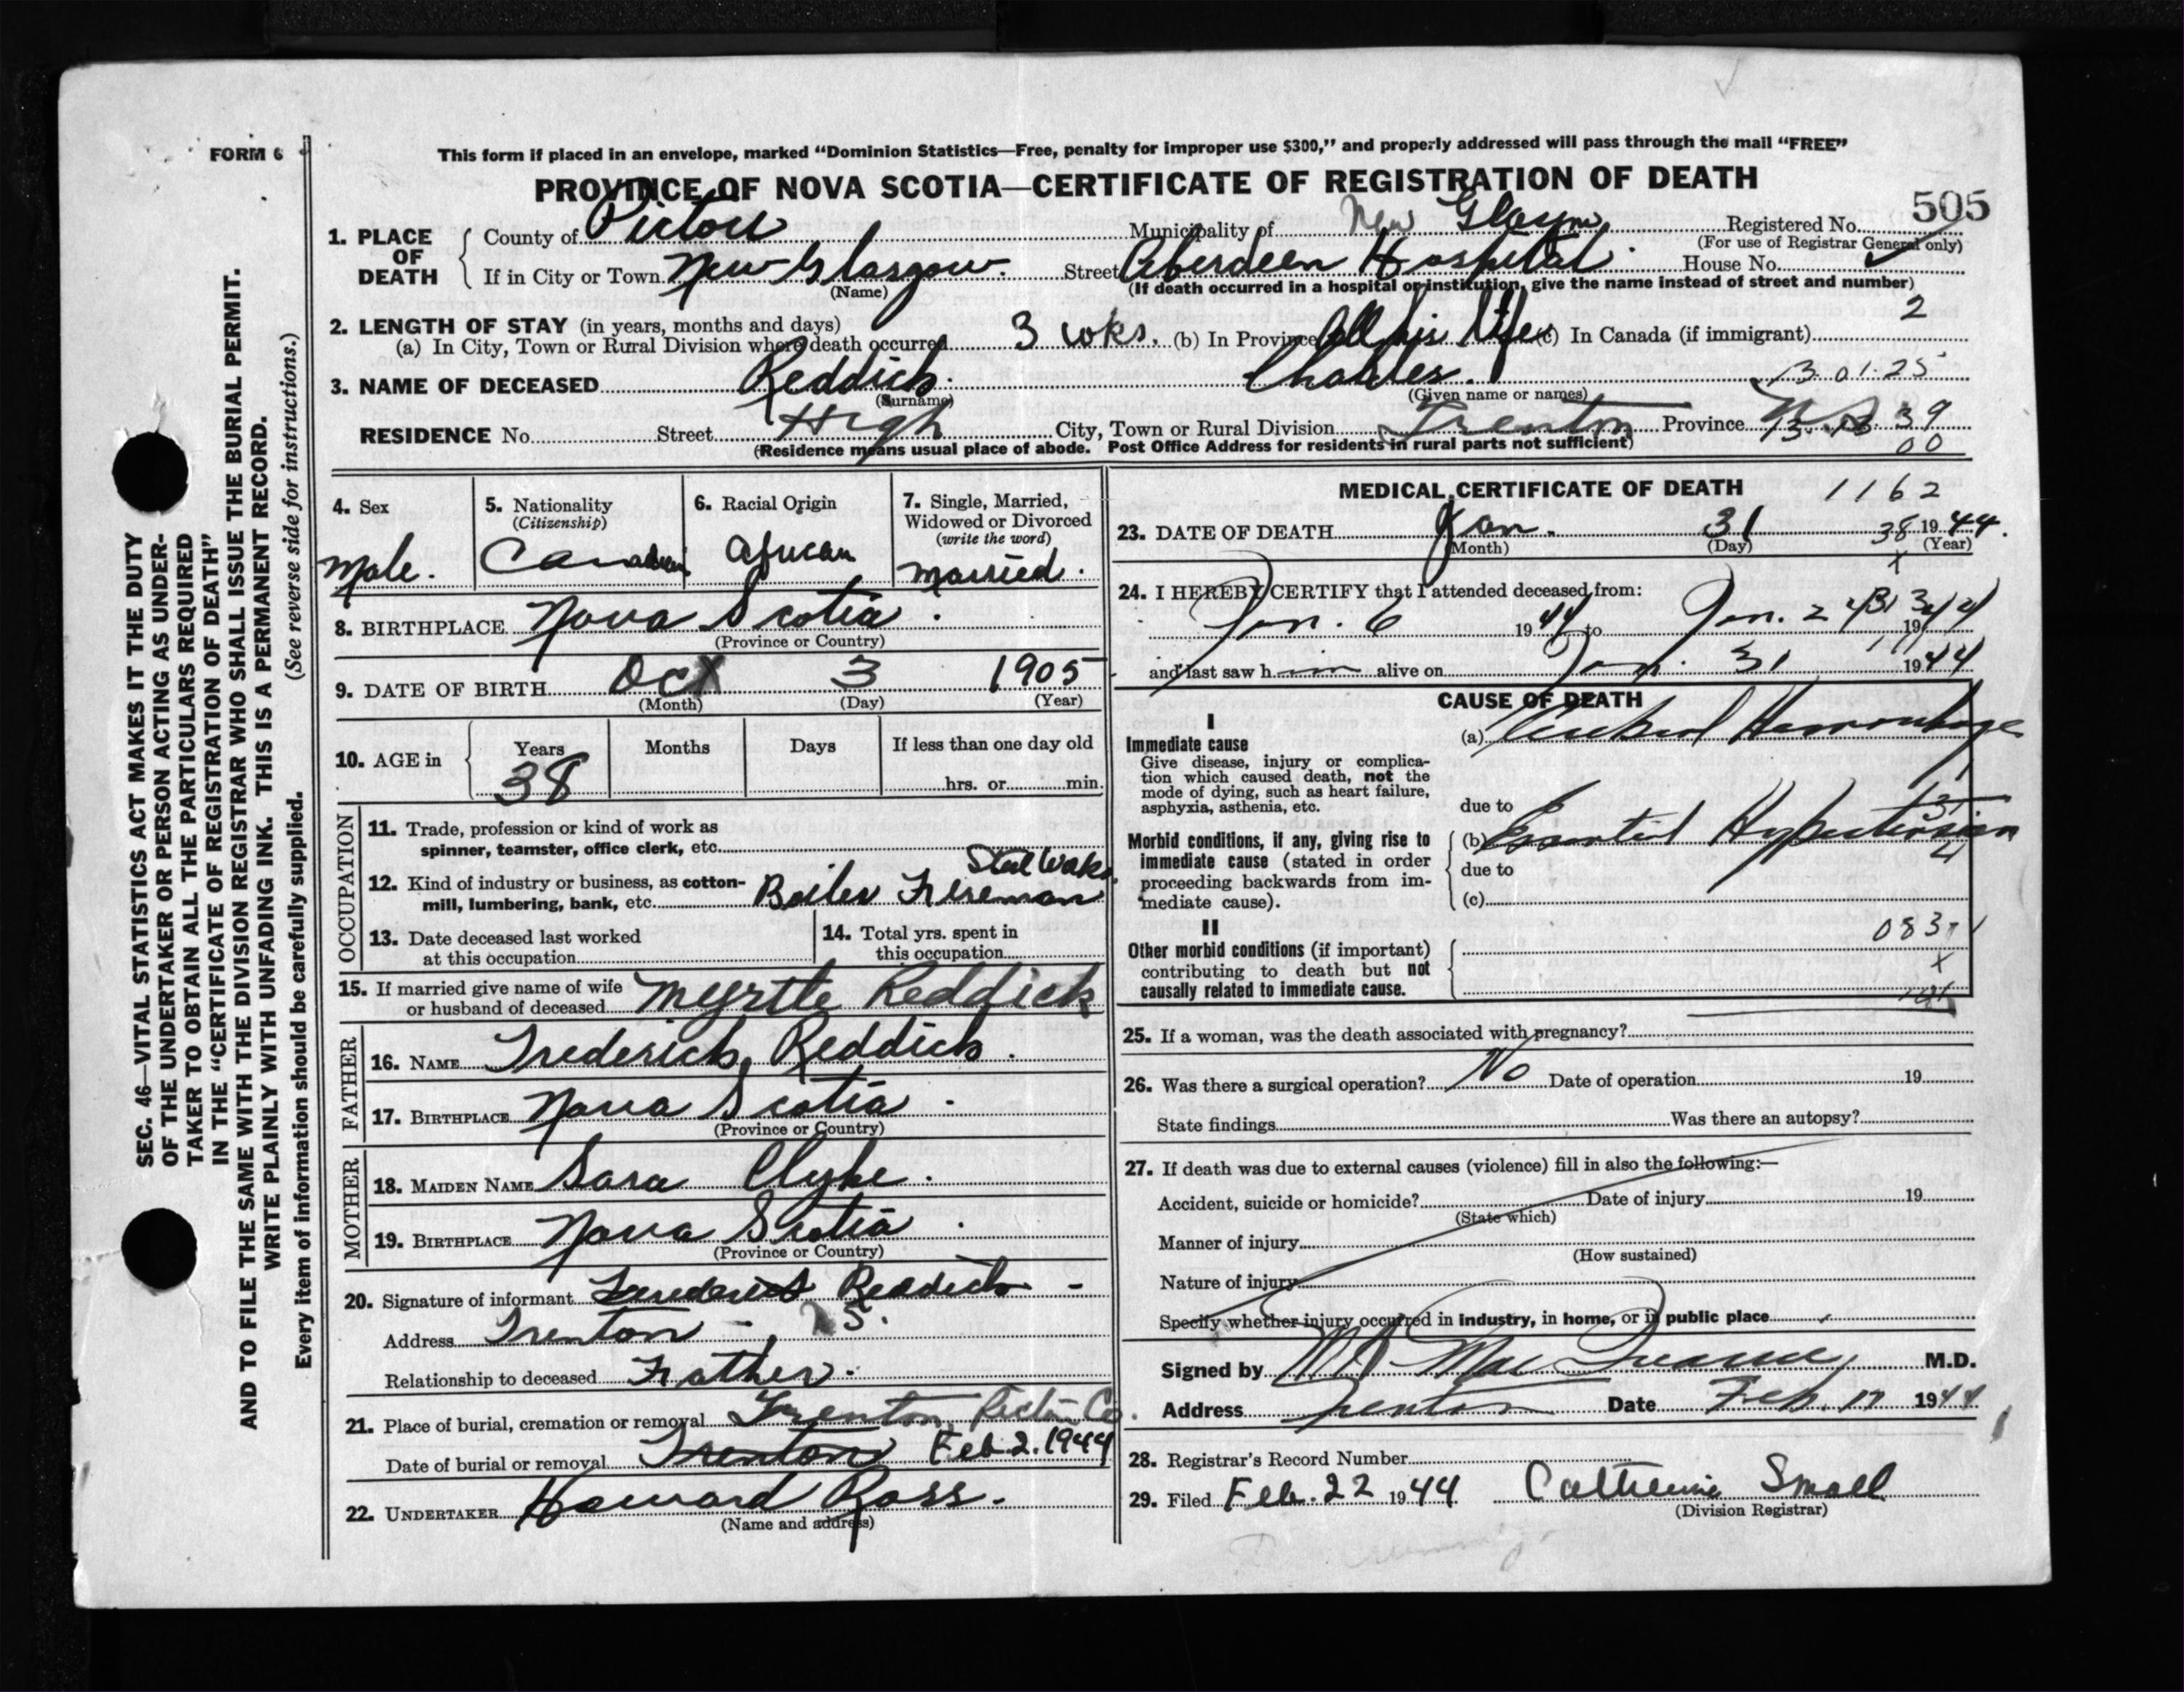 FORM 6
This form if placed in an envelope, marked “Dominion Statistics—Free, penalty for improper use $300,” and properly addressed will pass through the mail “FREE”
PROVINCE OF NOVA SCOTIA—CERTIFICATE OF REGISTRATION OF DEATH
505
1. PLACE OF DEATH
County of Pictou Municipality of New Glasgow Registered No.
(For use of Registrar General only)
If in City or Town New Glasgow. Street Aberdeen Hospital. House No.
(Name) (If death occurred in a hospital or institution, give the name instead of street and number)
2. LENGTH OF STAY (in years, months and days) 2
(a) In City, Town or Rural Division where death occurred 3 wks. (b) In Province All his life (c) In Canada (if immigrant)
3. NAME OF DECEASED Reddick. Charles. 3 01.25
(Surname) (Given name or names)
RESIDENCE No. Street High City, Town or Rural Division Trenton Province N.S. 39
(Residence means usual place of abode. Post Office Address for residents in rural parts not sufficient) 00
4. Sex
Male.
5. Nationality
(Citizenship)
Canadian
6. Racial Origin
African
7. Single, Married, Widowed or Divorced
(write the word)
Married.
8. BIRTHPLACE Nova Scotia.
(Province or Country)
9. DATE OF BIRTH Oct 3 1905
(Month) (Day) (Year)
10. AGE in Years Months Days If less than one day old
38 hrs. or min.
OCCUPATION
11. Trade, profession or kind of work as
spinner, teamster, office clerk, etc.
Steel Works.
12. Kind of industry or business, as cotton-
mill, lumbering, bank, etc. Boiler Fireman
13. Date deceased last worked
at this occupation
14. Total yrs. spent in
this occupation
15. If married give name of wife
or husband of deceased Myrtle Reddick
FATHER
16. NAME Frederick Reddick.
17. BIRTHPLACE Nova Scotia.
(Province or Country)
MOTHER
18. MAIDEN NAME Sara Clyke.
19. BIRTHPLACE Nova Scotia.
(Province or Country)
20. Signature of informant Frederick Reddick -
Address Trenton - N.S.
Relationship to deceased Father.
21. Place of burial, cremation or removal Trenton, Pictou Co.
Date of burial or removal Trenton Feb 2. 1944
22. UNDERTAKER Howard Ross.
(Name and address)
MEDICAL CERTIFICATE OF DEATH 1162
23. DATE OF DEATH Jan. 31 38 1944.
(Month) (Day) (Year)
x
24. I HEREBY CERTIFY that I attended deceased from:
Jan. 6 1944 to Jan. 31 1944
and last saw him alive on Jan. 31 1944
CAUSE OF DEATH
I
Immediate cause
Give disease, injury or complica-
tion which caused death, not the
mode of dying, such as heart failure,
asphyxia, asthenia, etc.
(a) Cerebral Hemorrhage
due to
Morbid conditions, if any, giving rise to
immediate cause (stated in order
proceeding backwards from im-
mediate cause).
(b) Essential Hypertension
due to
(c)
II
Other morbid conditions (if important)
contributing to death but not
causally related to immediate cause.
083
x
25. If a woman, was the death associated with pregnancy?
26. Was there a surgical operation? No Date of operation 19
State findings Was there an autopsy?
27. If death was due to external causes (violence) fill in also the following:—
Accident, suicide or homicide? Date of injury 19
(State which)
Manner of injury
(How sustained)
Nature of injury
Specify whether injury occurred in industry, in home, or in public place
Signed by M.D.
Address Trenton Date Feb. 17 1944
28. Registrar's Record Number
29. Filed Feb. 22 1944 Catherine Small
(Division Registrar)
SEC. 46—VITAL STATISTICS ACT MAKES IT THE DUTY
OF THE UNDERTAKER OR PERSON ACTING AS UNDER-
TAKER TO OBTAIN ALL THE PARTICULARS REQUIRED
IN THE “CERTIFICATE OF REGISTRATION OF DEATH”
AND TO FILE THE SAME WITH THE DIVISION REGISTRAR WHO SHALL ISSUE THE BURIAL PERMIT.
WRITE PLAINLY WITH UNFADING INK. THIS IS A PERMANENT RECORD.
Every item of information should be carefully supplied. (See reverse side for instructions.)